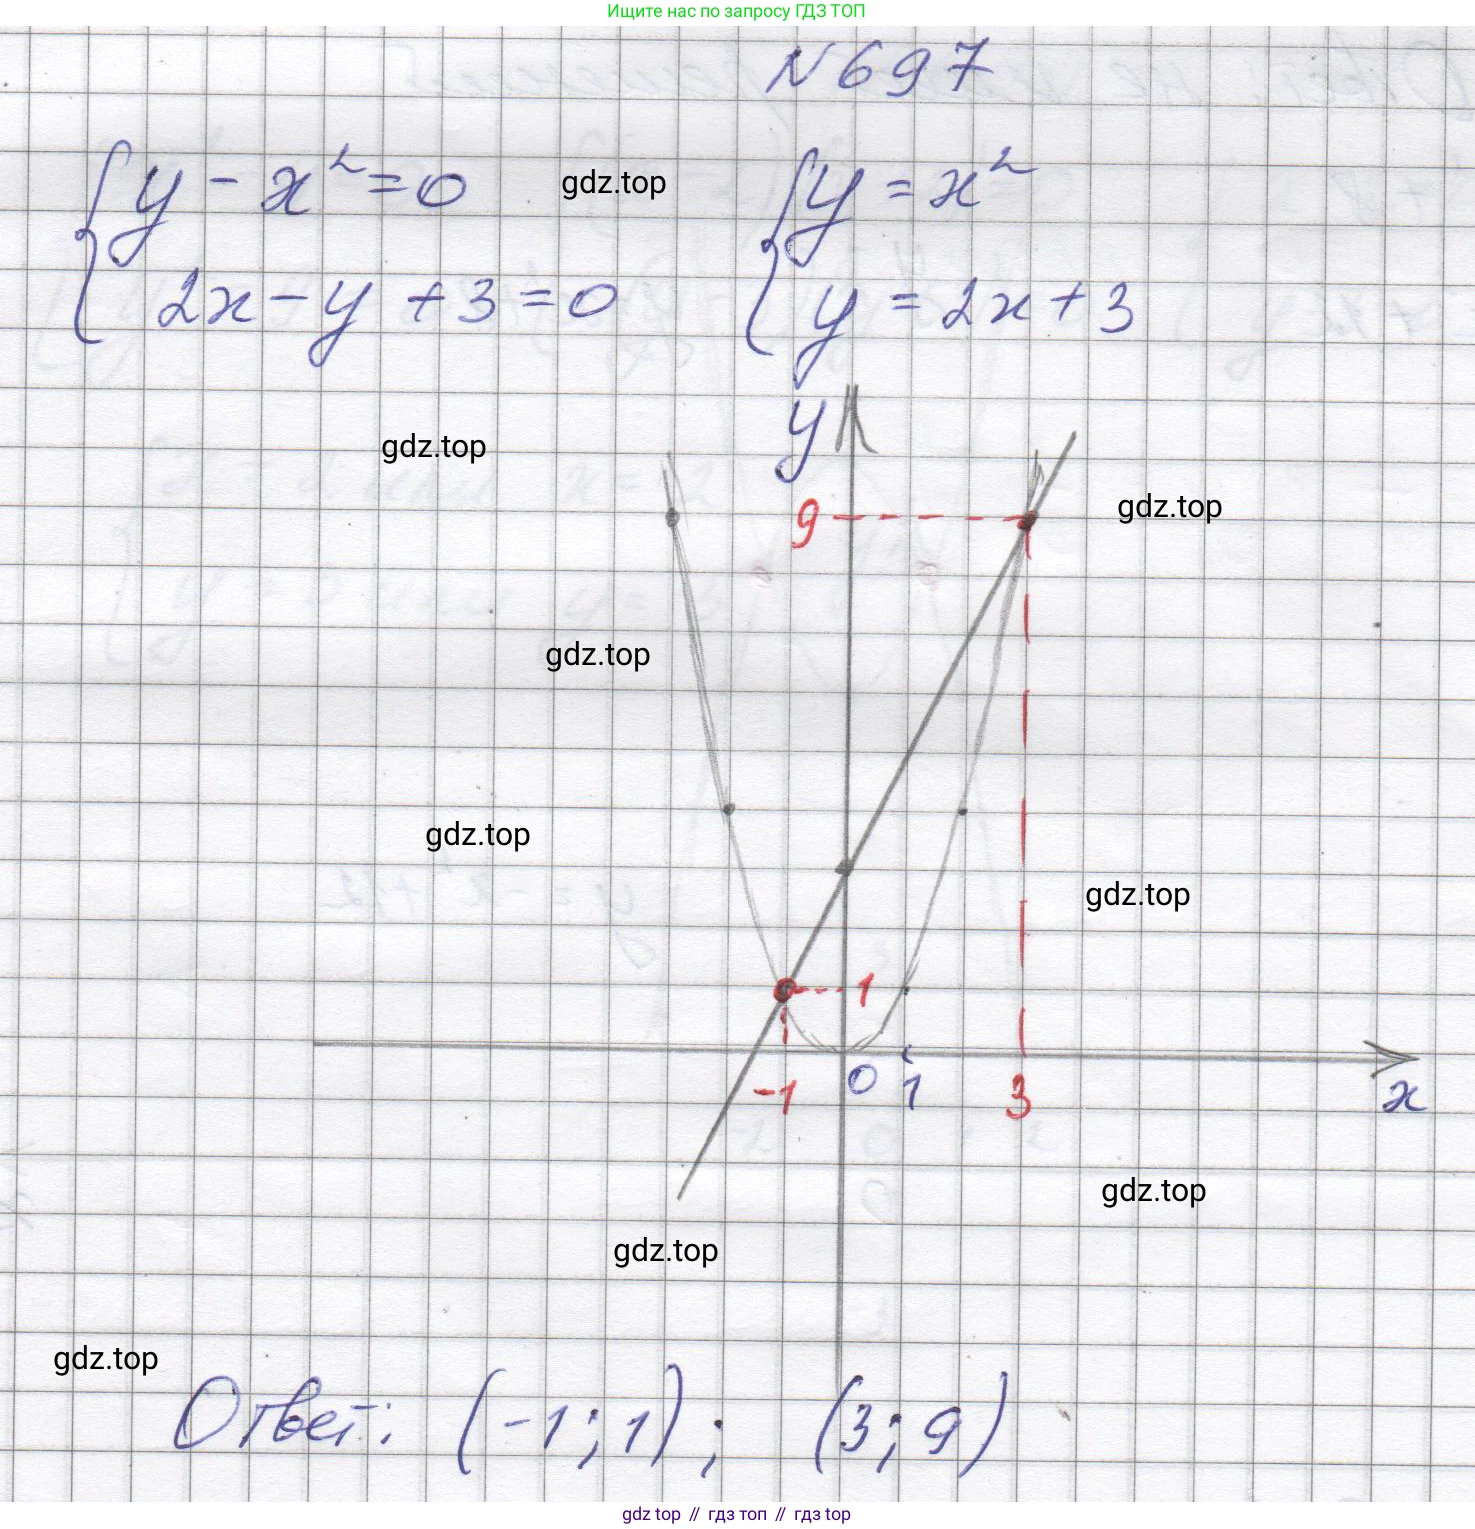 Ищите нас по запросу ГДЗ ТОП
N697
y - x² = 0
gdz.top
y = x²
2x - y + 3 = 0
y = 2x + 3
y
gdz.top
9
gdz.top
gdz.top
gdz.top
gdz.top
1
-1
0
1
3
x
gdz.top
gdz.top
gdz.top
Ответ: (-1; 1); (3; 9)
gdz top // гдз топ // гдз top